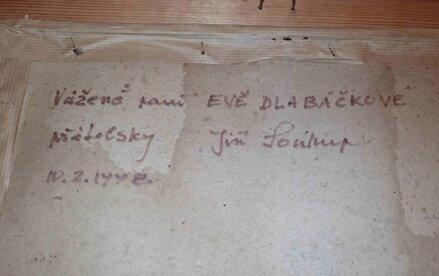 Vážené paní EVĚ DLABÁČKOVÉ
přátelsky Jiří Soukup
10.2.